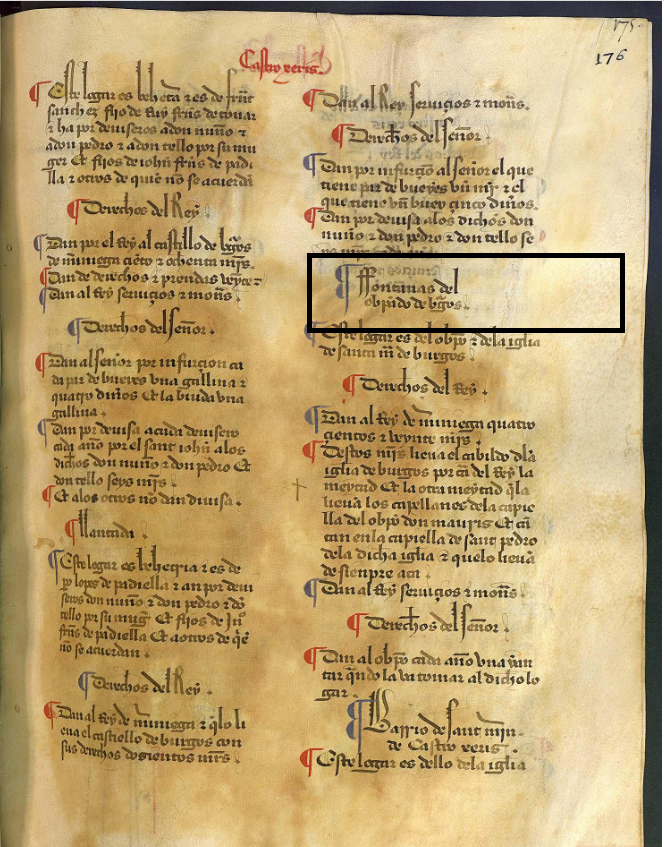 175
176
Castro xeris
Este logar es behetria & es de frñt
sanchez fijo de Ruy frñs de touar
& ha por deuiseros a don nuño &
a don pedro & a don tello por su mu
ger Et fijos de iohñ frñs de padi
lla & otros de quiē nō se acuerdā
Derechos del Rey
Dan por el Rey al castillo de bgos
de mūniega ciēto & ochenta mrs.
Dan de derechos & prendas veyte &
Dan al Rey seruiçios & moñs.
Derechos del Señor.
Dan al señor por infurcion ca
da par de bueyes vna gallina &
quatro diños Et la biuda vna
gallina.
Dan por deuisa a cada deuisero
cada año por el sant iohñ a los
dichos don nuño & don pedro Et
don tello seys mrs.
Et a los otros nō dan diuisa.
llantada.
Este logar es behetria & es de
po lopes de padiella & an por deui
seros don nuño & don pedro & dō
tello por su mug̃ Et fijos de Juº
frñs de padiella Et a otros de q̃ē
nō se acuerdan.
Derechos del Rey.
Dan al Rey de mūniega & q̃lo li
eua el castiello de burgos con
sus derechos dosientos mrs.
Dan al Rey seruiçios & moñs.
Derechos del Señor.
Dan por infurçō al señor el que
tiene par de bueyes vn mr. & el
que tiene vn buey çinco diños.
Dan por deuisa a los dichos don
nuño & don pedro & don tello se
ys mrs
ffontanas del
obpado de bgos.
Este logar es del obpo & de la iglia
de santa mª de burgos.
Derechos del Rey.
Dan al Rey de mūniega quatro
çientos & veynte mrs.
Destos mrs lieua el cabildo dla
iglia de burgos por cª del Rey la
meytad Et la otra meytad q̃ la
lieuā los capellanes de la capie
lla del obpo don mauris Et cā
tan en la capiella de sant pedro
de la dicha iglia & que lo lieuā
de sienpre aca.
Dan al Rey seruiçios & moñs.
Derechos del Señor.
Dan al obpo cada año vna yan
tar q̃ndo la va tomar al dicho lo
gar.
Barrio de sant min
de Castro xeris.
Este logar es dello de la iglia